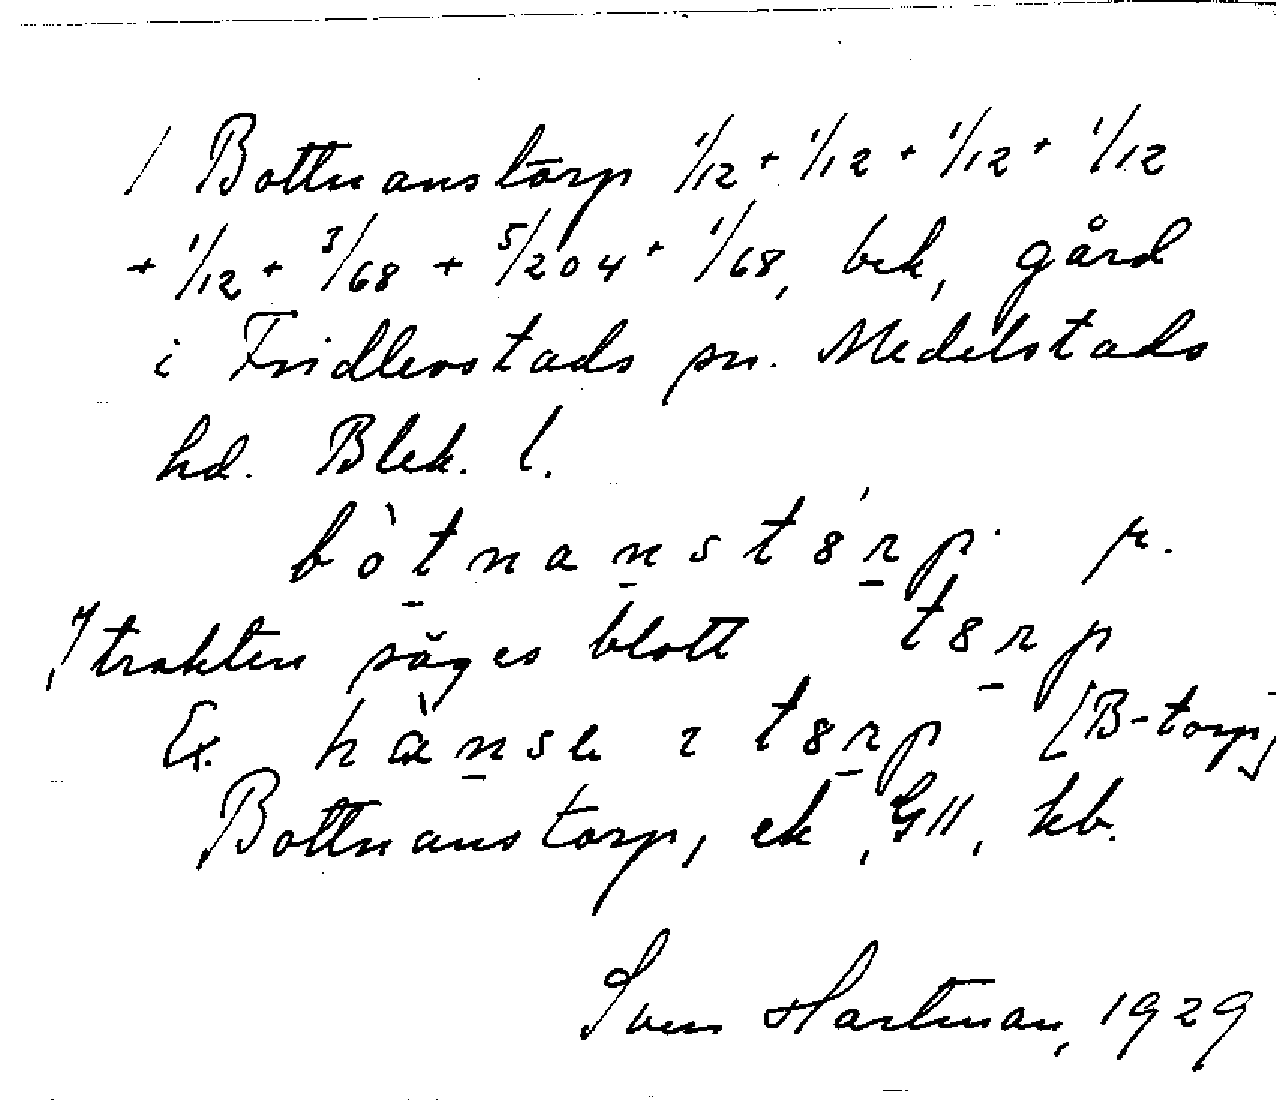 / Bottnanstorp 1/12 + 1/12 + 1/12 + 1/12
+ 1/12 + 3/68 + 5/204 + 1/68, bek, gård
i Fridlevstads sn. Medelstads
hd. Blek. l.
bòtnanst8rp.
I trakten säges blott t8rp
Ex. hànse ı t8rp [B-torp]
Bottnanstorp, ek, GII, kb.
Sven Hartman, 1929